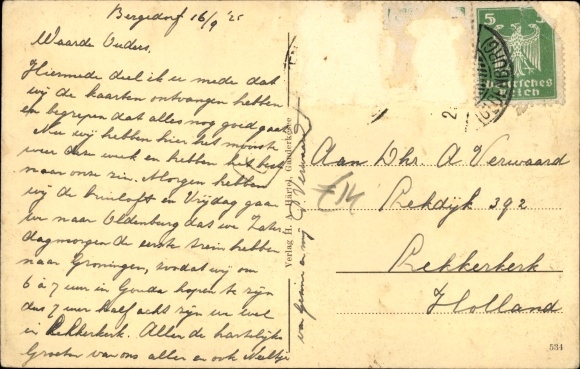 Bergedorf 16/9 '25
Waarde Ouders,
Hiermede deel ik u mede dat
wij de kaarten ontvangen hebben
en begrepen dat alles nog goed gaat
Nu wij hebben hier het mooiste
weer der week en hebben het best
naar onze zin. Morgen hebben
wij de bruiloft en Vrijdag gaan
we naar Oldenburg dat we Zater-
dagmorgen de eerste trein hebben
naar Groningen, zoodat wij om
6 à 7 uur in Gouda hopen te zijn
dus 7 uur half acht zijn we wel
in Lekkerkerk. Allen de hartelijke
Groeten van ons allen en ook Neeltje
en mij A Verwaard
Verlag H. Härtel, Ganderkesee
Aan Dhr A Verwaard
Lekdijk 392
Lekkerkerk
Holland
£14
5
Deutsches
Reich
534